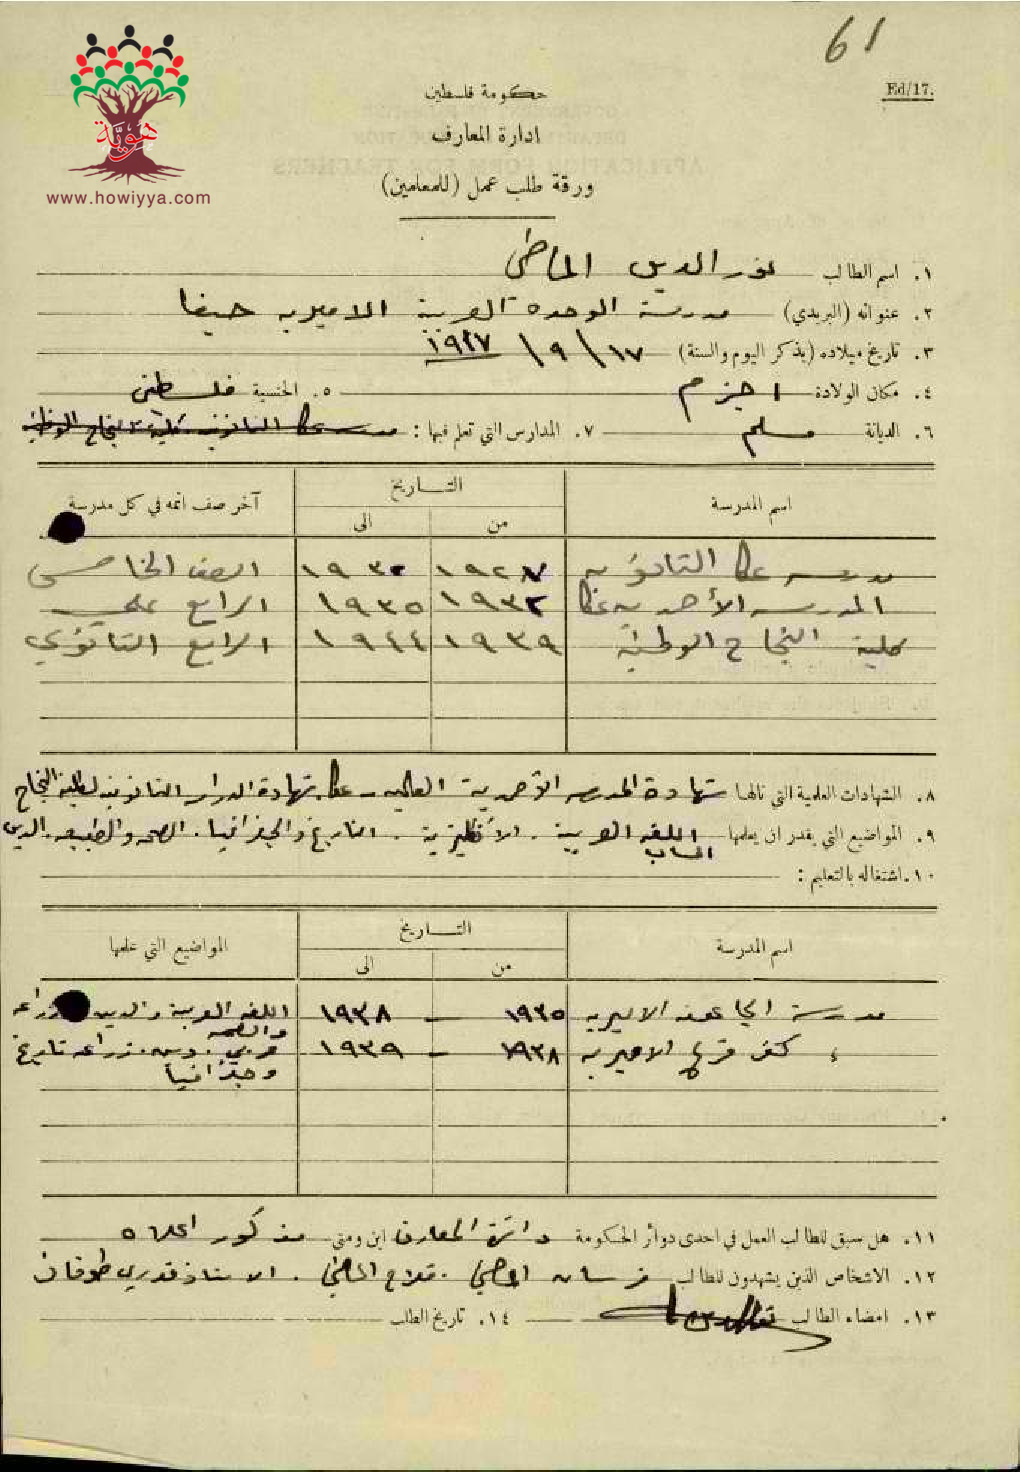 61
Ed/17.
حكومة فلسطين
ادارة المعارف
ورقة طلب عمل (للمعلمين)
هويّة
www.howiyya.com
١. اسم الطالب نور الدين الماضي
٢. عنوانه (البريدي) مدرسة الوحدة العربية الاميرية حيفا
٣. تاريخ ميلاده (بذكر اليوم والسنة) ١٧ / ٩ / ١٩١٧
٤. مكان الولادة اجزم ٥. الجنسية فلسطيني
٦. الديانة مسلم ٧. المدارس التي تعلم فيها :
اسم المدرسة التــاريخ آخر صف اتمه في كل مدرسة
من الى
مدرسه عكا الثانويه ١٩٢٧ ١٩٣٢ الصف الخامس
المدرسه الأحمديه عكا ١٩٣٢ ١٩٣٥ الرابع علمي
كلية النجاح الوطنية ١٩٣٩ ١٩٤٤ الرابع الثانوي
٨. الشهادات العلمية التي نالها شهادة المدرسه الأحمدية العالميه - عكا. شهادة الثانوية لكلية النجاح
٩. المواضيع التي يقدر ان يعلمها اللغه العربية . الأنكليزية . التاريخ والجغرافيا. الصحه والطبيعه. الدين
الحساب
١٠. اشتغاله بالتعليم :
اسم المدرسة التــاريخ المواضيع التي علمها
من الى
مدرسة الجاعونه الاميريه ١٩٣٥ – ١٩٣٨ اللغه العربية والدين وزراعه
والصحه
، كفر قرع الاميريه ١٩٣٨ – ١٩٣٩ عربي . دين. زراعه تاريخ
وجغرافيا
١١. هل سبق للطالب العمل في احدى دوائر الحكومة دائرة المعارف اين ومتى مذكور اعلاه
١٢. الاشخاص الذين يشهدون للطالب الماضي . فلاح الماضي . الاستاذ قدري طوقان
١٣. امضاء الطالب ١٤. تاريخ الطلب